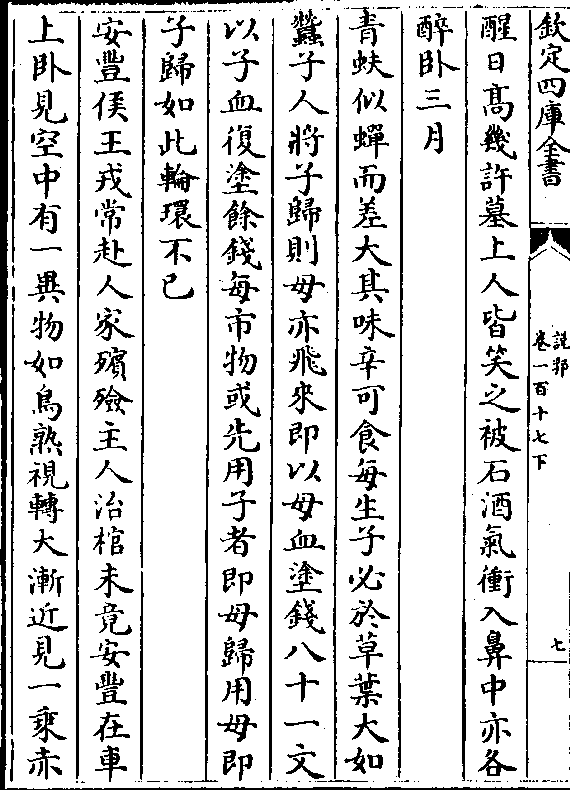 欽定四庫全書
說郛
卷一百十七下
七
醒日髙幾許墓上人皆笑之被石酒氣衝入鼻中亦各
醉卧三月
青蚨似蟬而差大其味辛可食每生子必於草葉大如
蠶子人將子歸則母亦飛來即以母血塗錢八十一文
以子血復塗餘錢每市物或先用子者即母歸用母即
子歸如此輪環不已
安豐侯王戎常赴人家殯殮主人治棺未竟安豐在車
上卧見空中有一異物如鳥熟視轉大漸近見一乗赤